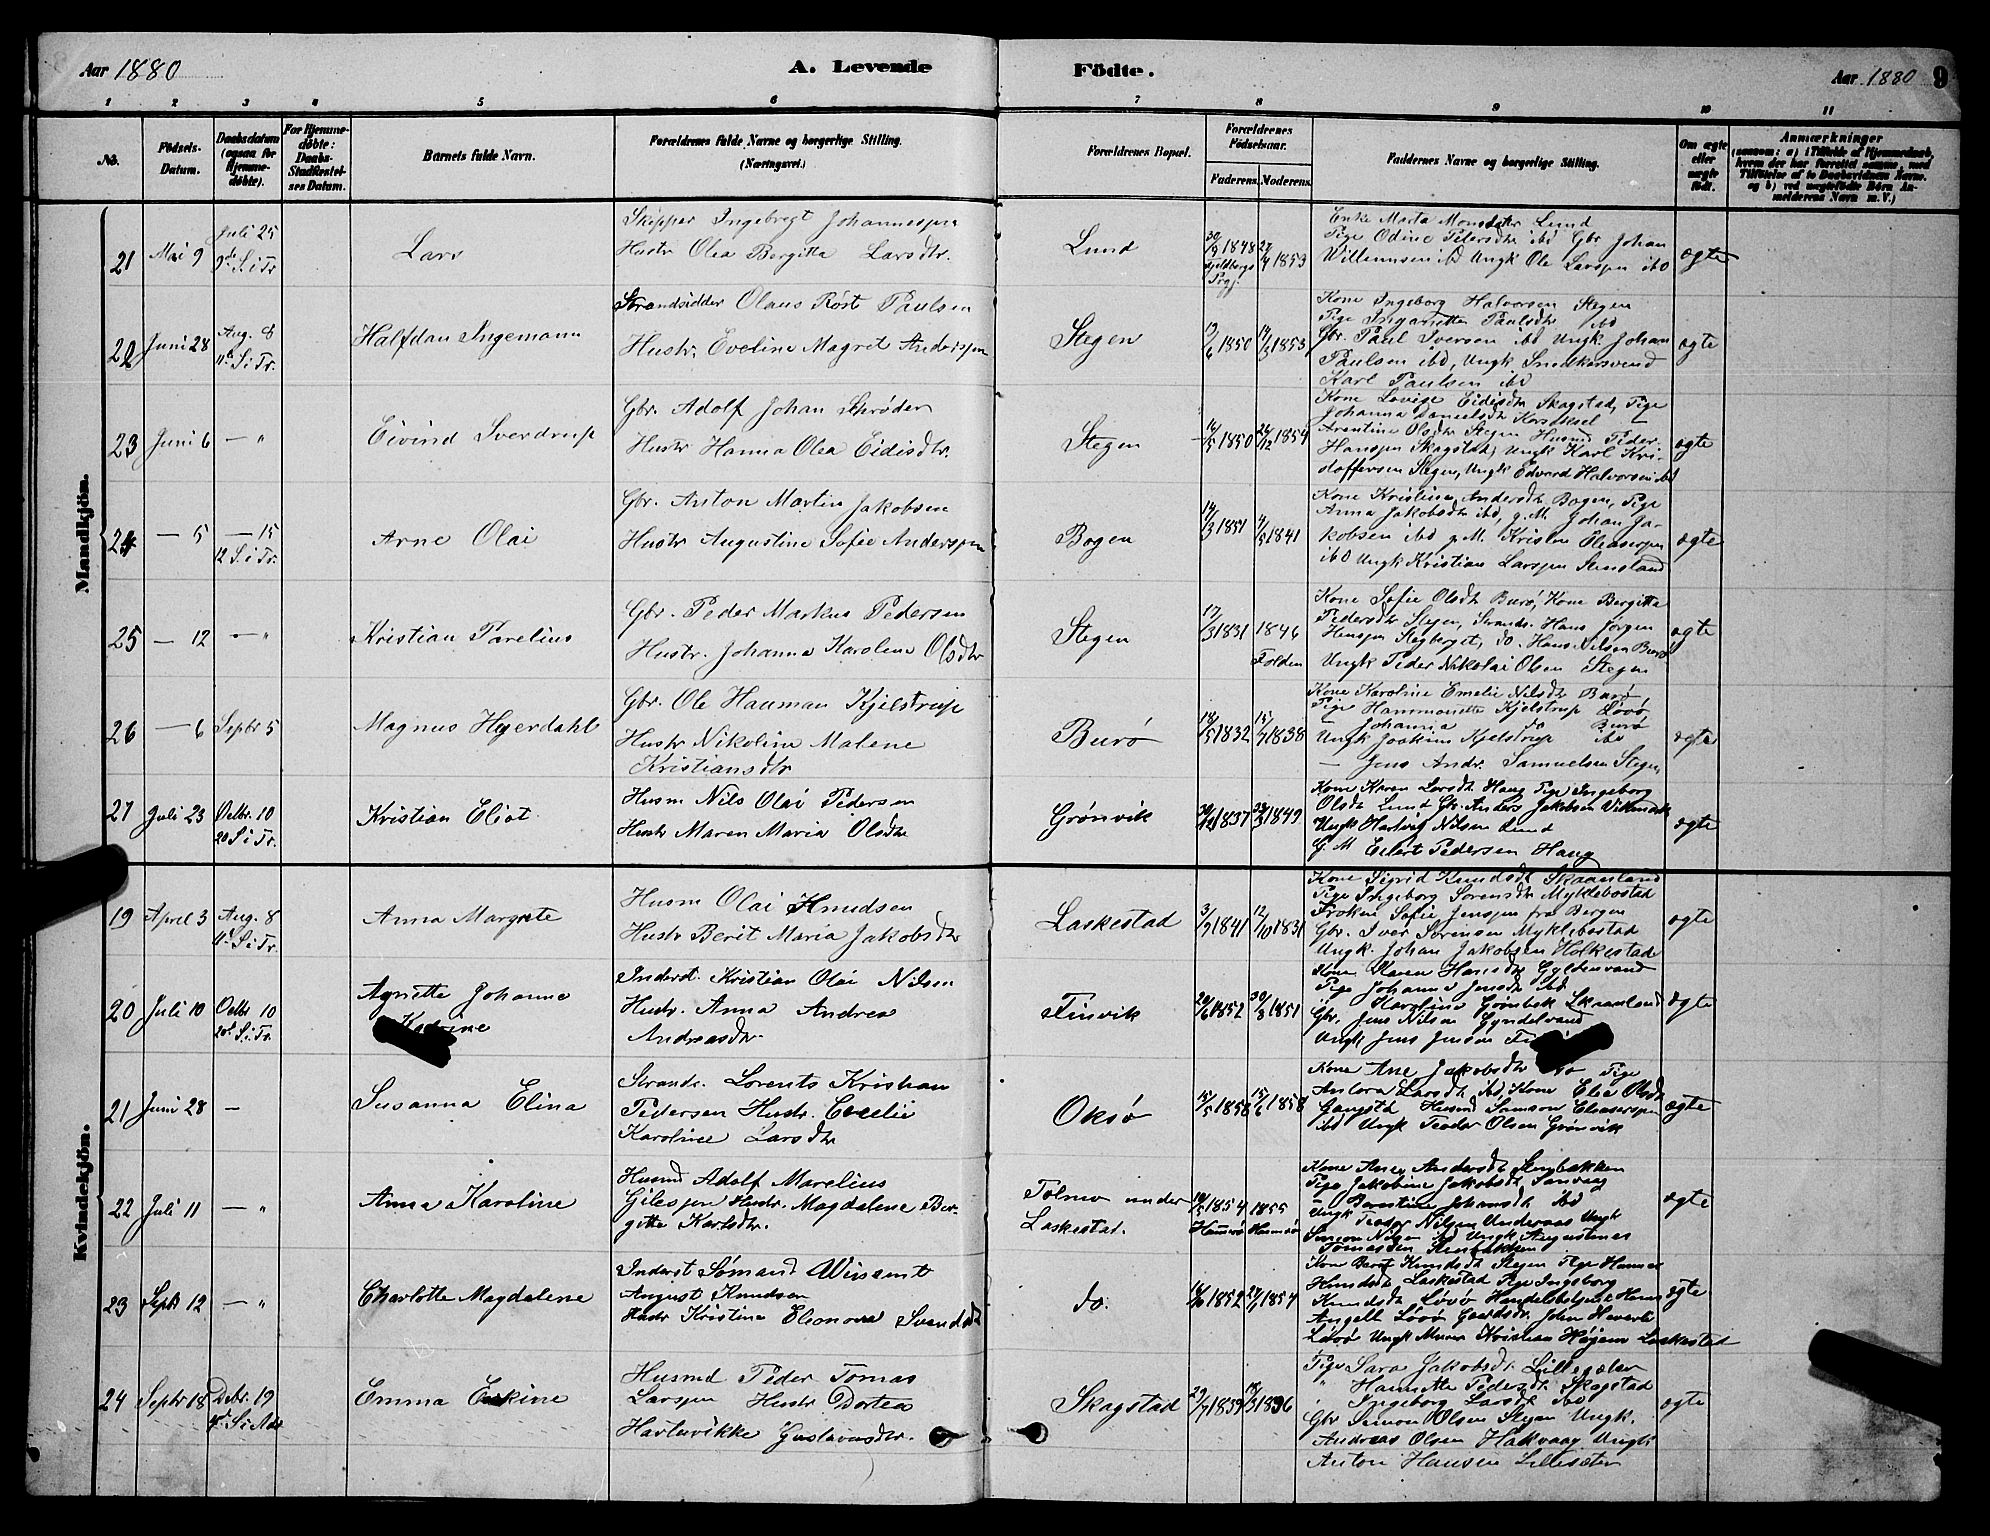 Aar 1880 A. Levende Födte. Aar 1880 9
1 2 3 4 5 6 7 8 9 10 11
No. Födsels-Datum. Daabsdatum (ogsaa for Hjemmedöbte). For Hjemmedöbte: Daabs-Stadfæstelses Datum. Barnets fulde Navn. Forældrenes fulde Navne og borgerlige Stilling. (Næringsvei.) Forældrenes Bopæl. Forældrenes Födselsaar. Faderens. Moderens. Faddernes Navne og borgerlige Stilling. Om ægte eller uægte födt. Anmærkninger (saasom: a) i Tilfælde af Hjemmedaab, hvem der har forrettet samme, med Tilföielse af to Daabsvidners Navne, og b) ved uægtefödte Börn Anmelderens Navn m. V.)
Mandkjön.
21 Mai 9 Juli 25 9de S. i Tr. Lars
Skipper Ingebregt Johannespen
Hustr Olea Bergitta Larsdtr.
Lund 30/9 1848 27/4 1853
Enke Marta Monsdatr Lund
Pige Odine Petersdtr ibd Gbr Johan
Willumsen ibd Ungk Ole Larspen ibd
ægte
22 Juni 28 Aug. 8 11te S. i Tr. Halfdan Ingemann
Strandsidder Olaus Röst Paulsen
Hustr. Eveline Magret Anderspen
Stegen 19/6 1850 14/3 1853
Kone Ingeborg Halvorsen Stegen
Pige Inganette Paulsdtr ibd
Gbr. Paul Iversen ibd Ungk. Johan
Paulsen ibd, Ungk Snedkersvend
Karl Paulsen ibd
ægte
23 Juni 6 — " Eivind Sverdrup
Gbr. Adolf Johan Schrøder
Hustr Hanna Olea Eidisdtr.
Stegen 14/5 1850 24/12 1854
Kone Lovise Eidisdtr Skagstad, Pige
Johanna Danielsdtr
Arentine Olsdtr Stegen Husmd Peder
Hanspen Skagstad, Ungk Karl Kri-
stoffersen Stegen, Ungk Edvard Halvorsen ibd
ægte
24 — 5 — 15 12 S. i Tr. Arne Olai
Gbr. Anton Martin Jakobsen
Hustr Augustine Sofie Anderspen
Bogen 14/3 1851 4/5 1841
Kone Kristine Andersdtr Bogen, Pige
Anna Jakobsdtr ibd, g. M. Johan Ja-
kobsen ibd g. M. Kristen Eleaserspen
ibd Ungk Kristian Larspen
ægte
25 — 12 — " Kristian Parelius
Gbr. Peder Markus Pedersen
Hustr. Johanna Karoline Olsdtr
Stegen 17/3 1831 1846 Folden
Kone Sofie Olsdtr Burø, Kone Bergitta
Pedersdtr Stegen, Strands. Hans Jörgen
Henspen Stegberget, do. Hans Nilsen Burø
Ungk Peder Nikolai Olsen Stegen
ægte
26 — 6 Septbr 5 Magnus Heyerdahl
Gbr. Ole Hauman Kjelstrup
Hustr Nikoline Malene
Kristiansdtr
Burø 18/5 1832 15/7 1838
Kone Karoline Emelie Nilsdtr Burø
Pige Hammonette Kjelstrup Løvø
— Johanna do Burø
Ungk Joakim Kjelstrup ibd
— Jens Andr. Samuelsen Stegen
ægte
27 Juli 23 Octbr. 10 20 S. i Tr. Kristian Eliot
Husm Nils Olai Pedersen
Hustr Maren Maria Olsdtr
Grønvik 1837 1849
Kone Karen Larsdtr Haug Pige Ingeborg
Olsdtr Lund Gbr. Anders Jakobsen Vikmark
Ungk Hartvig Nilsen Lund
G. M Eilert Pedersen Haug
ægte
Kvindekjön.
19 April 3 Aug. 8 11te S. i Tr. Anna Margrete
Husm Olai Knudsen
Hustr Berit Maria Jakobsdtr
Laskestad 3/9 1841 12/10 1831
Kone Sigrid Knudsdtr Skaanland
Pige Ingeborg Sörensdtr Myklebostad
Frøken Sofie Jenspen fra Bergen
Gbr. Iver Sörensen Myklebostad
Ungk. Johan Jakobsen Holkestad
ægte
20 Juli 10 Octbr 10 20de S. i Tr. Agnette Johanna
Katrine
Inderst. Kristian Olai Nilsen
Hustr. Anna Andrea
Andreasdtr.
Finvik 20/6 1852 30/8 1851
Kone Maren Hansdtr Gyltenvand
Pige Johanna Jensdtr ibd
" Karoline Grønbek Skaanland
Gbr. Jens Nilsen
Ungk Jens Jensen
ægte
21 Juni 28 — Susanna Elina
Strands. Lorents Kristian
Pedersen Hustr. Cecelie
Karoline Larsdtr
Oksø 18/5 1858 15/6 1858
Kone Ane Jakobsdtr Pige
Larsdtr ibd Kone Elea Olsdtr
Husmd Samson Eleaserspen
ibd Ungk Teodor Olsen Grønvik
ægte
22 Juli 11 — " Anna Karoline
Husmd Adolf Marelius
Gilespen Hustr. Magdalene Ber-
gitte Karlsdtr.
Tolmo under
Laskestad. 1854 1855
Hammerø Hammerø
Kone Ane Andersdtr Stenbakken
Pige Jakobine Jakobsdtr
Johansdtr ibd
Ungk Teodor Nilsen Ungk
Simeon Nilsen ibd Ungk Augustinus
Tomassen Stenbakken
ægte
23 Septb 12 — " Charlotte Magdalene
Inderst Sømand
August Knudsen
Hustr Kristine Eleonora Svendsdtr
do. 1852 1857
Kone Berit Knudsdtr Stegen Pige Hanna
Knudsdtr Laskestad Pige Ingeborg
Knudsdtr Løvø Handelsbetjent Hans
Angell Løvø Gaardsdr. John
Løvø Ungk Kristian Laskestad
ægte
24 Septbr 18 Decbr. 19 4de S. i Adv. Emma Erkine
Husmd Peder Tomas
Larspen Hustr Dortea
Hartvikke Gustavusdtr.
Skagstad 29/7 1839 1836
Pige Sara Jakobsdtr. Lillesæter
" Hannette Pedersdtr Skagstad
" Ingeborg Larsdtr ibd
Gbr Simon Olsen Stegen Ungk.
Andreas Olsen Hakvaag Ungk
Anton Hansen Lillesæter
ægte